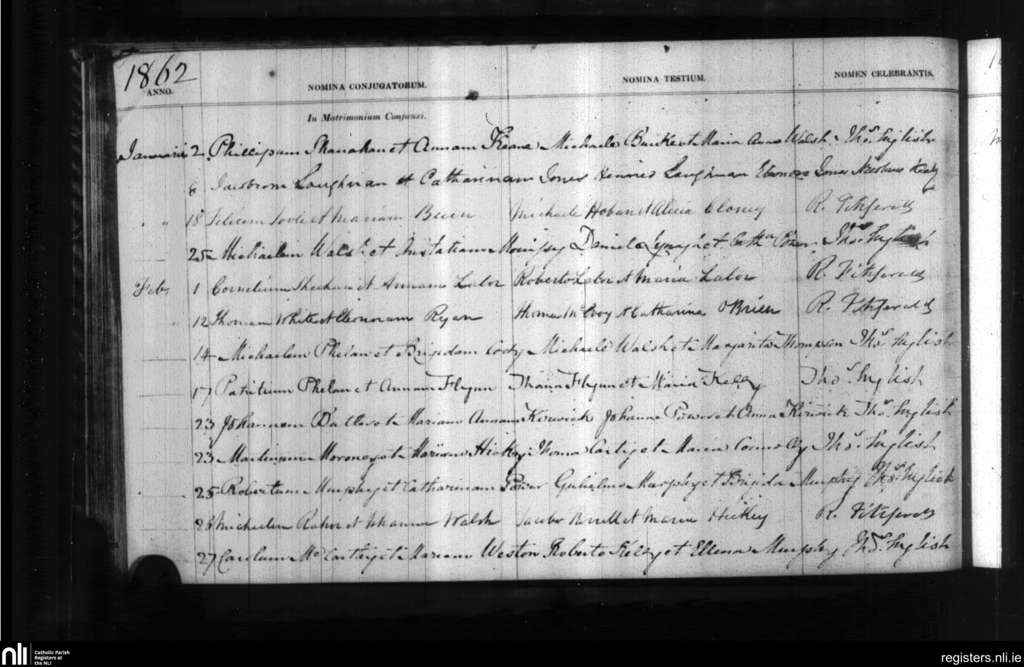 1862
ANNO.
NOMINA CONJUGATORUM.
NOMINA TESTIUM.
NOMEN CELEBRANTIS.
In Matrimonium Conjunxi.
Januarii 2. Phillipum Shanahan et Annam Keane Michaele et Maria Anna Walsh Thos. English
8 Jacobum Laughman et Catharinam Jones Laughman Jones
" " 18 et Mariam Michaele Hoban et Alicia Cloney R. Fitzgerald
25 Michaelem Walsh et Daniele et Thos. English
Feb. 1 Cornelium Sheehan et Annam Lalor Roberto Lalor et Maria Lalor R. Fitzgerald
" 12 Thomam White et Elionoram Ryan Thoma McEvoy et Catharina O'Brien R. Fitzgerald
14 Michaelem Phelan et Brigidam Cody Michaele Walsh et Margarita Thompson Thos. English
17 Patritium Phelan et Annam Flynn Flynn et Maria Kelly Thos. English
23 Johannem Butler et Mariam Annam Kirwick Johanne Power et Anna Kirwick Thos. English
23 Martinum Moroney et Mariam Hickey Thoma et Maria Thos. English
25 Robertum Murphy et Catharinam Power Gulielmo Murphy et Brigida Murphy Thos. English
26 Michaelem et Johannam Walsh Jacobo et Maria Hickey R. Fitzgerald
27 Carolum McCarthy et Mariam Weston Roberto Kelly et Ellena Murphy Thos. English
nli Catholic Parish
Registers at
the NLI
registers.nli.ie